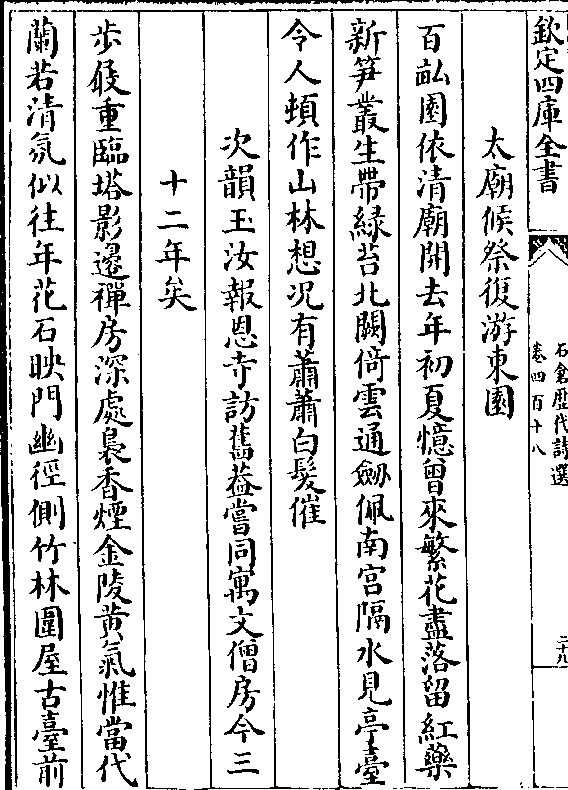 欽定四庫全書
石倉歷代詩選
卷四百十八
二十九
太廟候祭復游東園
百畝園依清廟開去年初夏憶曾來繁花盡落留紅藥
新笋叢生帶緑苔北闕倚雲通劒佩南宫隔水見亭臺
令人頓作山林想况有蕭蕭白髮催
次韻玉汝報恩寺訪舊葢嘗同寓文僧房今三
十二年矣
歩屐重臨塔影邊禪房深處裊香煙金陵黄氣惟當代
蘭若清氛似往年花石映門幽徑側竹林圍屋古臺前